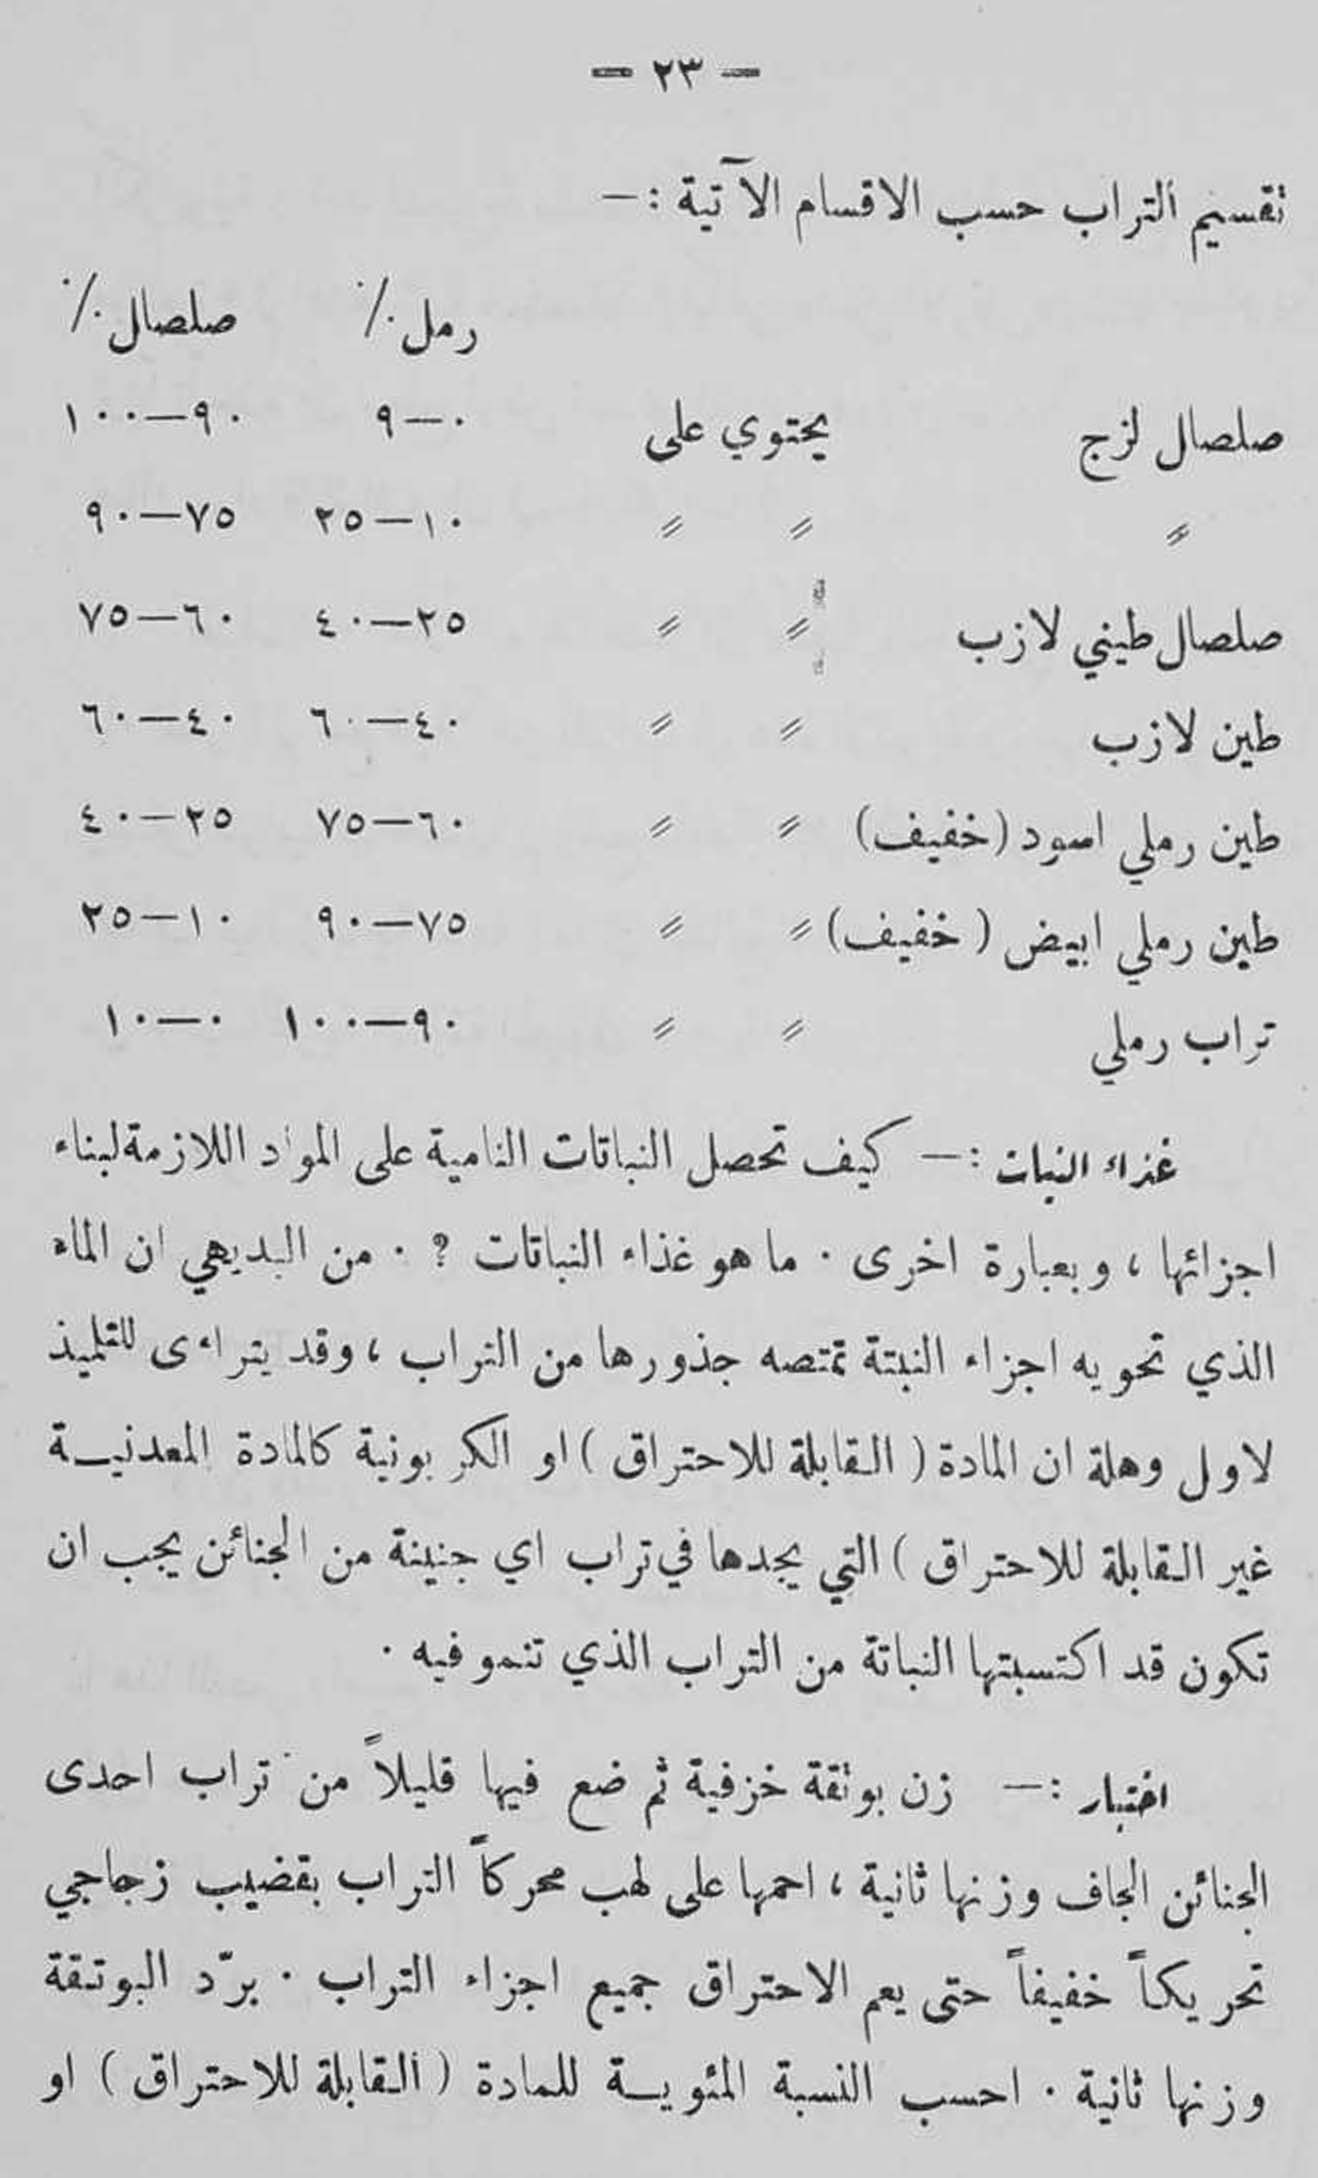 — ٢٣ —
تقسيم التراب حسب الاقسام الآتية :—
رمل ٪ صلصال ٪
صلصال لزج يحتوي على ٠—٩ ٩٠—١٠٠
〃 〃 〃 ١٠—٢٥ ٧٥—٩٠
صلصال طيني لازب 〃 〃 ٢٥—٤٠ ٦٠—٧٥
طين لازب 〃 〃 ٤٠—٦٠ ٤٠—٦٠
طين رملي اسود (خفيف) 〃 〃 ٦٠—٧٥ ٢٥—٤٠
طين رملي ابيض ( خفيف) 〃 〃 ٧٥—٩٠ ١٠—٢٥
تراب رملي 〃 〃 ٩٠—١٠٠ ٠—١٠
غذاء النبات :— كيف تحصل النباتات النامية على المواد اللازمة لبناء
اجزائها ، وبعبارة اخرى ٠ ما هو غذاء النباتات ? ٠ من البديهي ان الماء
الذي تحويه اجزاء النبتة تمتصه جذورها من التراب ، وقد يتراءى للتلميذ
لاول وهلة ان المادة ( القابلة للاحتراق ) او الكربونية كالمادة المعدنيـة
غير القابلة للاحتراق ) التي يجدها في تراب اي جنينة من الجنائن يجب ان
تكون قد اكتسبتها النباتة من التراب الذي تنمو فيه ٠
اختبار :— زن بوتقة خزفية ثم ضع فيها قليلاً من تراب احدى
الجنائن الجاف وزنها ثانية ، احمها على لهب محركاً التراب بقضيب زجاجي
تحريكاً خفيفاً حتى يعم الاحتراق جميع اجزاء التراب ٠ برّد البوتقة
وزنها ثانية ٠ احسب النسبة المئويـة للمادة ( القابلة للاحتراق ) او